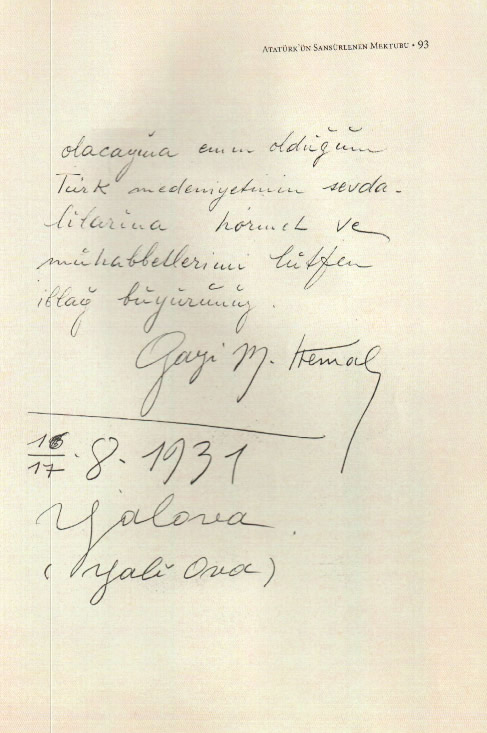 ATATÜRK'ÜN SANSÜRLENEN MEKTUBU • 93
olacağına emin olduğum
Türk medeniyetinin sevda-
lılarına hörmet ve
mühabbetlerimi lütfen
iblağ büyürünüz.
Gazi M. Kemal
16/17.8.1931
Yalova.
(Yali Ova)